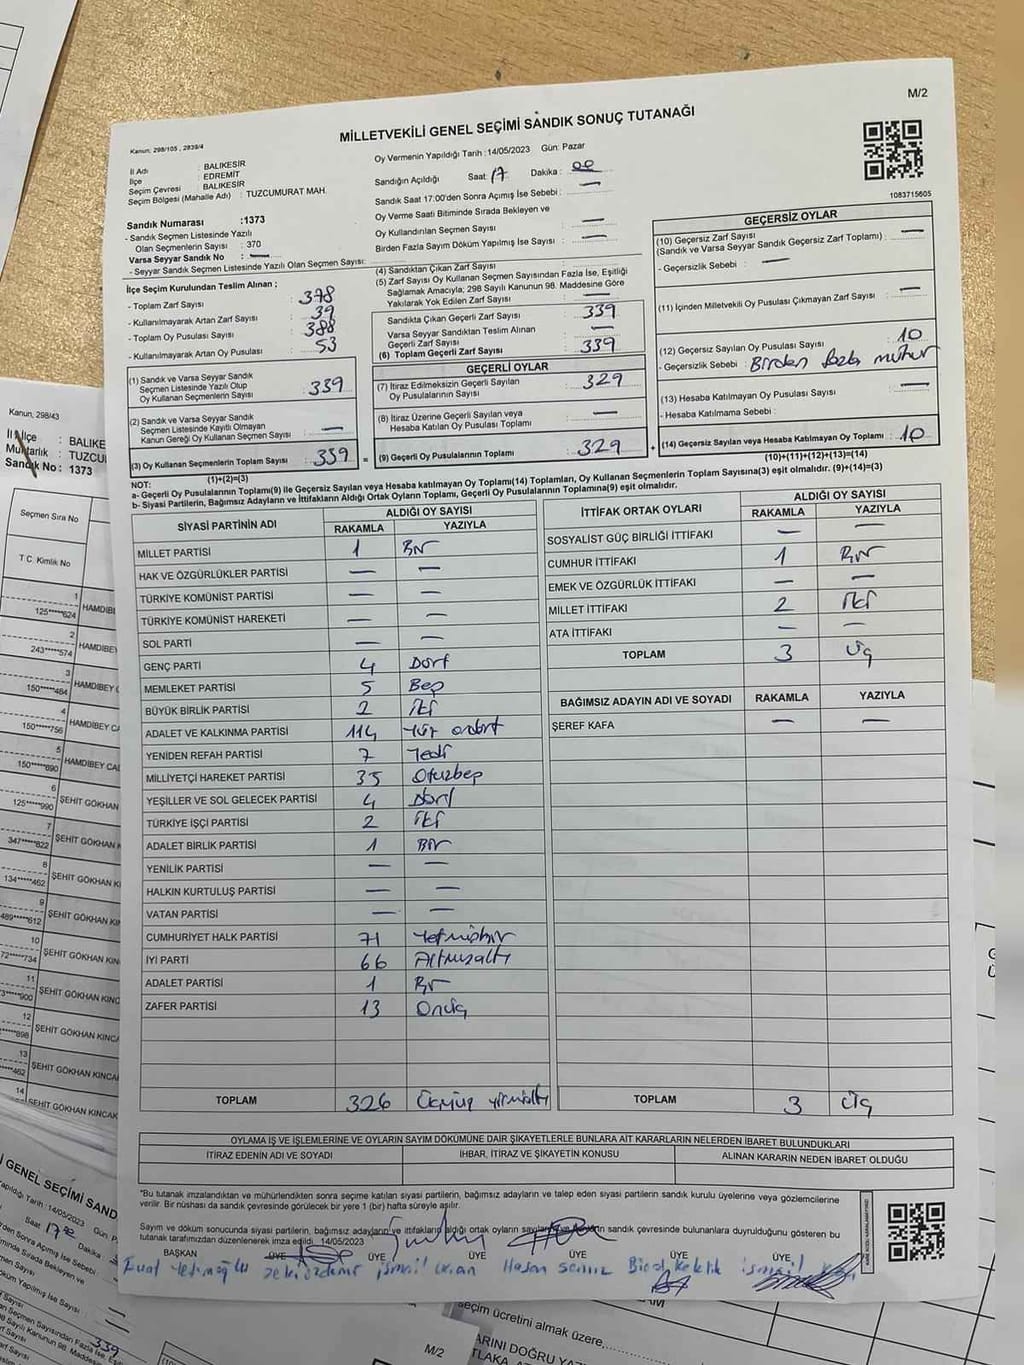 M/2
MİLLETVEKİLİ GENEL SEÇİMİ SANDIK SONUÇ TUTANAĞI
Kanun; 298/105 , 2839/4
İl Adı : BALIKESİR
İlçe : EDREMİT
Seçim Çevresi : BALIKESİR
Seçim Bölgesi (Mahalle Adı) : TUZCUMURAT MAH.
Sandık Numarası :1373
- Sandık Seçmen Listesinde Yazılı
Olan Seçmenlerin Sayısı : 370
Varsa Seyyar Sandık No : —
- Seyyar Sandık Seçmen Listesinde Yazılı Olan Seçmen Sayısı:
Oy Vermenin Yapıldığı Tarih :14/05/2023 Gün: Pazar
Sandığın Açıldığı Saat: 17 Dakika : 00
Sandık Saat 17:00'den Sonra Açımış İse Sebebi : —
Oy Verme Saati Bitiminde Sırada Bekleyen ve
Oy Kullandırılan Seçmen Sayısı : —
Birden Fazla Sayım Döküm Yapılmış İse Sayısı : —
1083715605
İlçe Seçim Kurulundan Teslim Alınan ;
- Toplam Zarf Sayısı : 378
- Kullanılmayarak Artan Zarf Sayısı : 39
- Toplam Oy Pusulası Sayısı : 388
- Kullanılmayarak Artan Oy Pusulası : 53
(1) Sandık ve Varsa Seyyar Sandık
Seçmen Listesinde Yazılı Olup
Oy Kullanan Seçmenlerin Sayısı : 339
(2) Sandık ve Varsa Seyyar Sandık
Seçmen Listesinde Kayıtlı Olmayan
Kanun Gereği Oy Kullanan Seçmen Sayısı : —
(3) Oy Kullanan Seçmenlerin Toplam Sayısı : 339
(1)+(2)=(3)
(4) Sandıktan Çıkan Zarf Sayısı
(5) Zarf Sayısı Oy Kullanan Seçmen Sayısından Fazla İse, Eşitliği
Sağlamak Amacıyla; 298 Sayılı Kanunun 98. Maddesine Göre
Yakılarak Yok Edilen Zarf Sayısı : —
Sandıkta Çıkan Geçerli Zarf Sayısı : 339
Varsa Seyyar Sandıktan Teslim Alınan
Geçerli Zarf Sayısı : —
(6) Toplam Geçerli Zarf Sayısı : 339
GEÇERLİ OYLAR
(7) İtiraz Edilmeksizin Geçerli Sayılan
Oy Pusulalarının Sayısı : 329
(8) İtiraz Üzerine Geçerli Sayılan veya
Hesaba Katılan Oy Pusulası Toplamı : —
= (9) Geçerli Oy Pusulalarının Toplamı : 329 +
GEÇERSİZ OYLAR
(10) Geçersiz Zarf Sayısı
(Sandık ve Varsa Seyyar Sandık Geçersiz Zarf Toplamı) : —
- Geçersizlik Sebebi : —
(11) İçinden Milletvekili Oy Pusulası Çıkmayan Zarf Sayısı : —
(12) Geçersiz Sayılan Oy Pusulası Sayısı : 10
- Geçersizlik Sebebi : Birden fazla mühür
(13) Hesaba Katılmayan Oy Pusulası Sayısı : —
- Hesaba Katılmama Sebebi :
(14) Geçersiz Sayılan veya Hesaba Katılmayan Oy Toplamı : 10
(10)+(11)+(12)+(13)=(14)
NOT:
a- Geçerli Oy Pusulalarının Toplamı(9) ile Geçersiz Sayılan veya Hesaba Katılmayan Oy Toplamı(14) Toplamları, Oy Kullanan Seçmenlerin Toplam Sayısına(3) eşit olmalıdır. (9)+(14)=(3)
b- Siyasi Partilerin, Bağımsız Adayların ve İttifakların Aldığı Ortak Oyların Toplamı, Geçerli Oy Pusulalarının Toplamına(9) eşit olmalıdır.
SİYASİ PARTİNİN ADI ALDIĞI OY SAYISI
RAKAMLA YAZIYLA
MİLLET PARTİSİ 1 Bir
HAK VE ÖZGÜRLÜKLER PARTİSİ — —
TÜRKİYE KOMÜNİST PARTİSİ — —
TÜRKİYE KOMÜNİST HAREKETİ — —
SOL PARTİ — —
GENÇ PARTİ 4 Dört
MEMLEKET PARTİSİ 5 Beş
BÜYÜK BİRLİK PARTİSİ 2 İki
ADALET VE KALKINMA PARTİSİ 114 Yüz ondört
YENİDEN REFAH PARTİSİ 7 Yedi
MİLLİYETÇİ HAREKET PARTİSİ 35 Otuzbeş
YEŞİLLER VE SOL GELECEK PARTİSİ 4 Dört
TÜRKİYE İŞÇİ PARTİSİ 2 İki
ADALET BİRLİK PARTİSİ 1 Bir
YENİLİK PARTİSİ — —
HALKIN KURTULUŞ PARTİSİ — —
VATAN PARTİSİ — —
CUMHURİYET HALK PARTİSİ 71 Yetmişbir
İYİ PARTİ 66 Altmışaltı
ADALET PARTİSİ 1 Bir
ZAFER PARTİSİ 13 Onüç
TOPLAM 326 Üçyüz yirmialtı
İTTİFAK ORTAK OYLARI ALDIĞI OY SAYISI
RAKAMLA YAZIYLA
SOSYALİST GÜÇ BİRLİĞİ İTTİFAKI — —
CUMHUR İTTİFAKI 1 Bir
EMEK VE ÖZGÜRLÜK İTTİFAKI — —
MİLLET İTTİFAKI 2 İki
ATA İTTİFAKI — —
TOPLAM 3 Üç
BAĞIMSIZ ADAYIN ADI VE SOYADI RAKAMLA YAZIYLA
ŞEREF KAFA — —
TOPLAM 3 Üç
OYLAMA İŞ VE İŞLEMLERİNE VE OYLARIN SAYIM DÖKÜMÜNE DAİR ŞİKAYETLERLE BUNLARA AİT KARARLARIN NELERDEN İBARET BULUNDUKLARI
İTİRAZ EDENİN ADI VE SOYADI İHBAR, İTİRAZ VE ŞİKAYETİN KONUSU ALINAN KARARIN NEDEN İBARET OLDUĞU
*Bu tutanak imzalandıktan ve mühürlendikten sonra seçime katılan siyasi partilerin, bağımsız adayların ve talep eden siyasi partilerin sandık kurulu üyelerine veya gözlemcilerine
verilir. Bir nüshası da sandık çevresinde görülecek bir yere 1 (bir) hafta süreyle asılır.
Sayım ve döküm sonucunda siyasi partilerin, bağımsız adayların ve ittifakların aldığı ortak oyların sandık çevresinde bulunanlara duyrulduğunu gösteren bu
tutanak tarafımızdan düzenlenerek imza edildi. 14/05/2023
BAŞKAN ÜYE ÜYE ÜYE ÜYE ÜYE ÜYE
Zeki özdemir ismail Hasan
Kanun, 298/43
İl İlçe : BALIKE
Muhtarlık : TUZCU
Sandık No : 1373
Seçmen Sıra No
T.C. Kimlik No
1
125*****624 HAMDİBE
2
243*****574 HAMDİBEY
3
150*****484 HAMDİBEY C
4
150*****756 HAMDİBEY CA
5
150*****690 HAMDİBEY CA
6
125*****990 ŞEHİT GÖKHAN
7
347*****822 ŞEHİT GÖKHAN K
8
134*****462 ŞEHİT GÖKHAN KI
9
489*****612 ŞEHİT GÖKHAN KIN
10
72*****734 ŞEHİT GÖKHAN KIN
11
3*****900 ŞEHİT GÖKHAN KINC
12
*****898 ŞEHİT GÖKHAN KINCA
13
****462 ŞEHİT GÖKHAN KINCA
14
ŞEHİT GÖKHAN KINCAK
GENEL SEÇİMİ SAND
Yapıldığı Tarih :14/05/2023
M/2
seçim ücretini almak üzere,